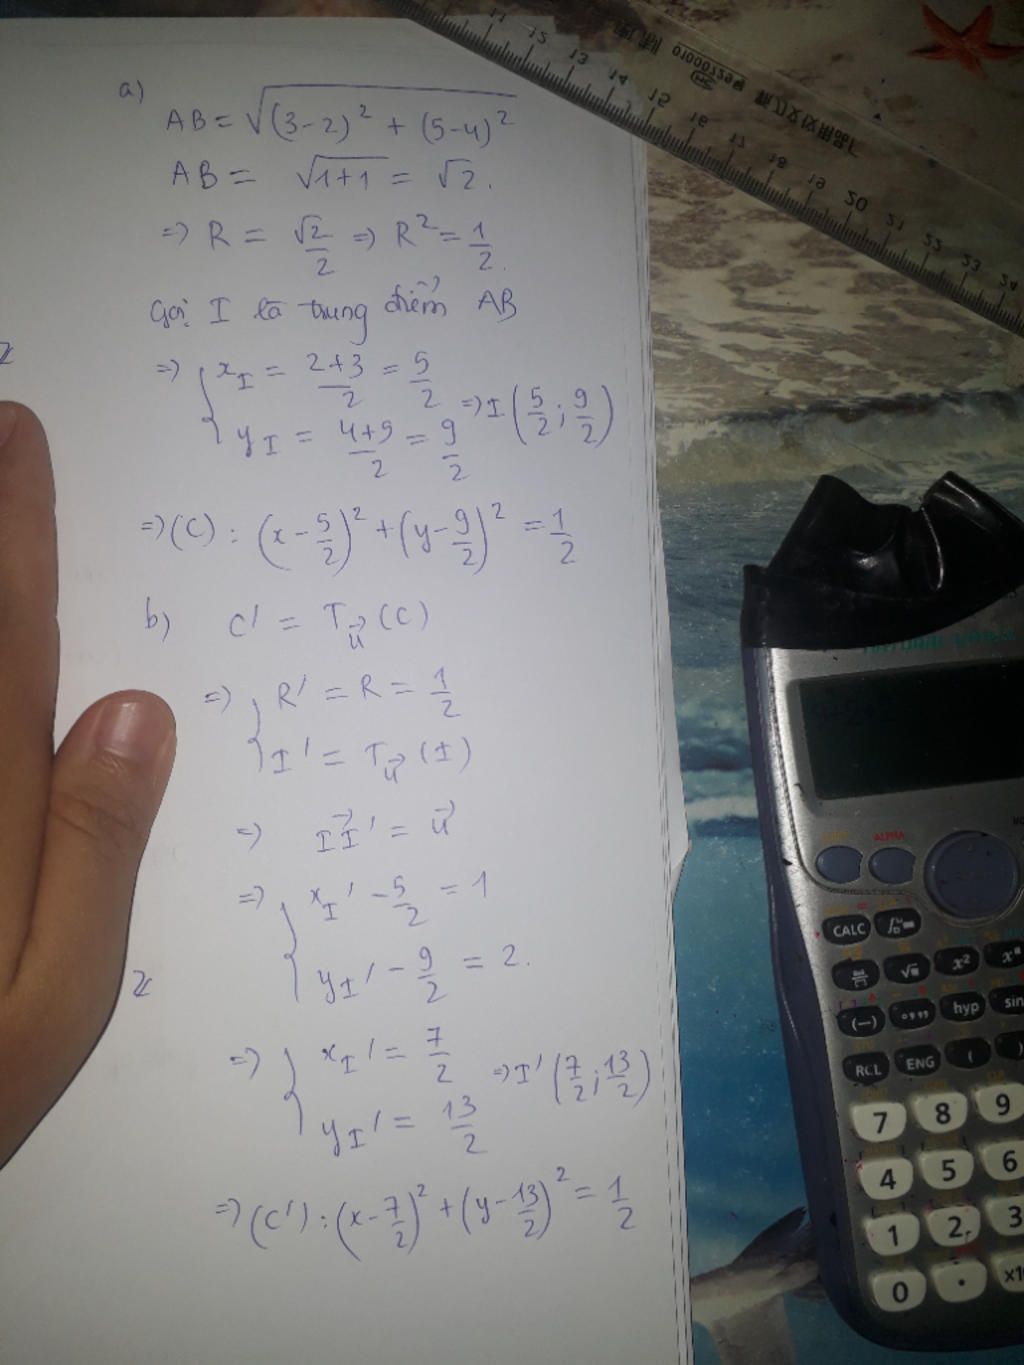 a)
AB = √(3-2)² + (5-4)²
AB = √1+1 = √2.
=> R = √2/2 => R² = 1/2.
Gọi I là trung điểm AB
=> { x_I = 2+3/2 = 5/2
y_I = 4+9/2 = 9/2 => I (5/2 ; 9/2)
=> (C) : (x - 5/2)² + (y - 9/2)² = 1/2
b) C' = T_u⃗ (C)
=> { R' = R = 1/2
I' = T_u⃗ (I)
=> II'⃗ = u⃗
=> { x_I' - 5/2 = 1
y_I' - 9/2 = 2.
=> { x_I' = 7/2
y_I' = 13/2 => I' (7/2 ; 13/2)
=> (C') : (x - 7/2)² + (y - 13/2)² = 1/2
11 12 13 14 15 16 17 18 19 20 21 22 23 24
ALPHA
CALC
√ x²
(-) hyp sin
RCL ENG ( )
7 8 9
4 5 6
1 2 3
0 .